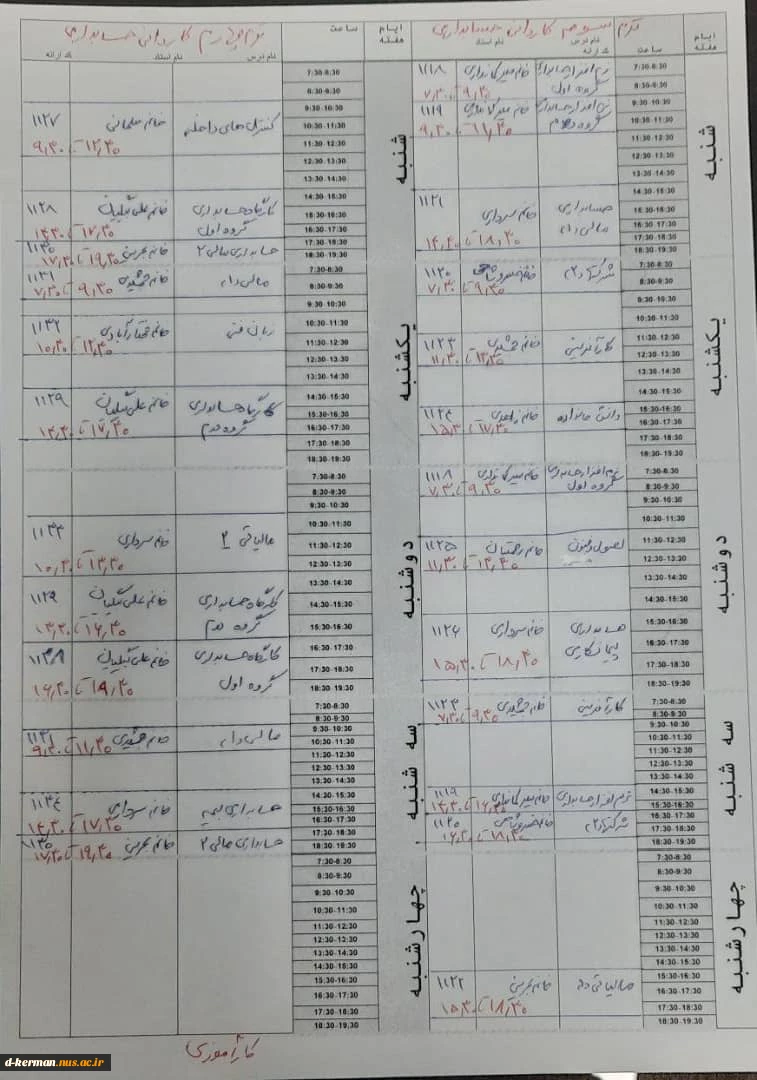 ترم سوم کاردانی حسابداری
ایام هفته
ساعت
نام استاد
نام درس
کد ارائه
شنبه
7:30-8:30
نرم افزار حسابداری
1118
8:30-9:30
گروه اول
7,30 تا 9,30
9:30-10:30
نرم افزار حسابداری
1119
10:30-11:30
گروه دوم
9,30 تا 11,30
11:30-12:30
12:30-13:30
13:30-14:30
14:30-15:30
15:30-16:30
حسابداری
خانم سرداری
1121
16:30-17:30
مالی
17:30-18:30
14,30 تا 18,30
18:30-19:30
یکشنبه
7:30-8:30
1120
8:30-9:30
7,30 تا 9,30
9:30-10:30
10:30-11:30
11:30-12:30
کارآفرینی
خانم جمشیدی
1123
12:30-13:30
11,30 تا 13,30
13:30-14:30
14:30-15:30
15:30-16:30
دانش خانواده
خانم زاهدی
1124
16:30-17:30
15,30 تا 17,30
17:30-18:30
18:30-19:30
دوشنبه
7:30-8:30
نرم افزار حسابداری
1118
8:30-9:30
گروه اول
7,30 تا 9,30
9:30-10:30
10:30-11:30
11:30-12:30
1125
12:30-13:30
11,30 تا 13,30
13:30-14:30
14:30-15:30
15:30-16:30
حسابداری
خانم سرداری
1126
16:30-17:30
پیمانکاری
17:30-18:30
15,30 تا 18,30
18:30-19:30
سه شنبه
7:30-8:30
کارآفرینی
خانم جمشیدی
1123
8:30-9:30
7,30 تا 9,30
9:30-10:30
10:30-11:30
11:30-12:30
12:30-13:30
13:30-14:30
14:30-15:30
نرم افزار حسابداری
1119
15:30-16:30
14,30 تا 16,30
16:30-17:30
1120
17:30-18:30
16,30 تا 18,30
18:30-19:30
چهارشنبه
7:30-8:30
8:30-9:30
9:30-10:30
10:30-11:30
11:30-12:30
12:30-13:30
13:30-14:30
14:30-15:30
15:30-16:30
خانم بحرینی
1122
16:30-17:30
17:30-18:30
15,30 تا 18,30
18:30-19:30
ترم چهارم کاردانی حسابداری
ایام هفته
ساعت
نام استاد
نام درس
کد ارائه
شنبه
7:30-8:30
8:30-9:30
9:30-10:30
10:30-11:30
کنترل های داخلی
1127
11:30-12:30
9,30 تا 12,30
12:30-13:30
13:30-14:30
14:30-15:30
کارگاه حسابداری
1128
15:30-16:30
گروه اول
16:30-17:30
14,30 تا 17,30
17:30-18:30
حسابداری مالی 2
خانم بحرینی
1130
18:30-19:30
17,30 تا 19,30
یکشنبه
7:30-8:30
خانم جمشیدی
1131
8:30-9:30
7,30 تا 9,30
9:30-10:30
10:30-11:30
زبان فنی
1132
11:30-12:30
10,30 تا 12,30
12:30-13:30
13:30-14:30
14:30-15:30
کارگاه حسابداری
1129
15:30-16:30
گروه دوم
16:30-17:30
14,30 تا 17,30
17:30-18:30
18:30-19:30
دوشنبه
7:30-8:30
8:30-9:30
9:30-10:30
10:30-11:30
مالیاتی 2
خانم سرداری
1133
11:30-12:30
12:30-13:30
10,30 تا 13,30
13:30-14:30
کارگاه حسابداری
1129
14:30-15:30
گروه دوم
15:30-16:30
13,30 تا 16,30
16:30-17:30
کارگاه حسابداری
1128
17:30-18:30
گروه اول
18:30-19:30
16,30 تا 19,30
سه شنبه
7:30-8:30
8:30-9:30
9:30-10:30
خانم جمشیدی
1131
10:30-11:30
9,30 تا 11,30
11:30-12:30
12:30-13:30
13:30-14:30
14:30-15:30
حسابداری بیمه
خانم سرداری
1134
15:30-16:30
16:30-17:30
14,30 تا 17,30
17:30-18:30
حسابداری مالی 2
خانم بحرینی
1130
18:30-19:30
17,30 تا 19,30
چهارشنبه
7:30-8:30
8:30-9:30
9:30-10:30
10:30-11:30
11:30-12:30
12:30-13:30
13:30-14:30
14:30-15:30
15:30-16:30
16:30-17:30
17:30-18:30
18:30-19:30
کارآموزی
d-kerman.nus.ac.ir